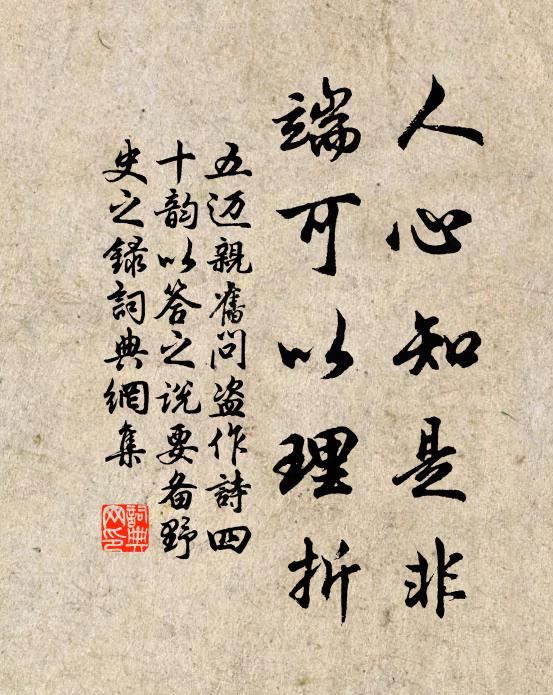 人心知是非
端可以理折
五迈親舊问盗作詩四
十韵以答之说要备野
史之録詞典網集
詞典网印